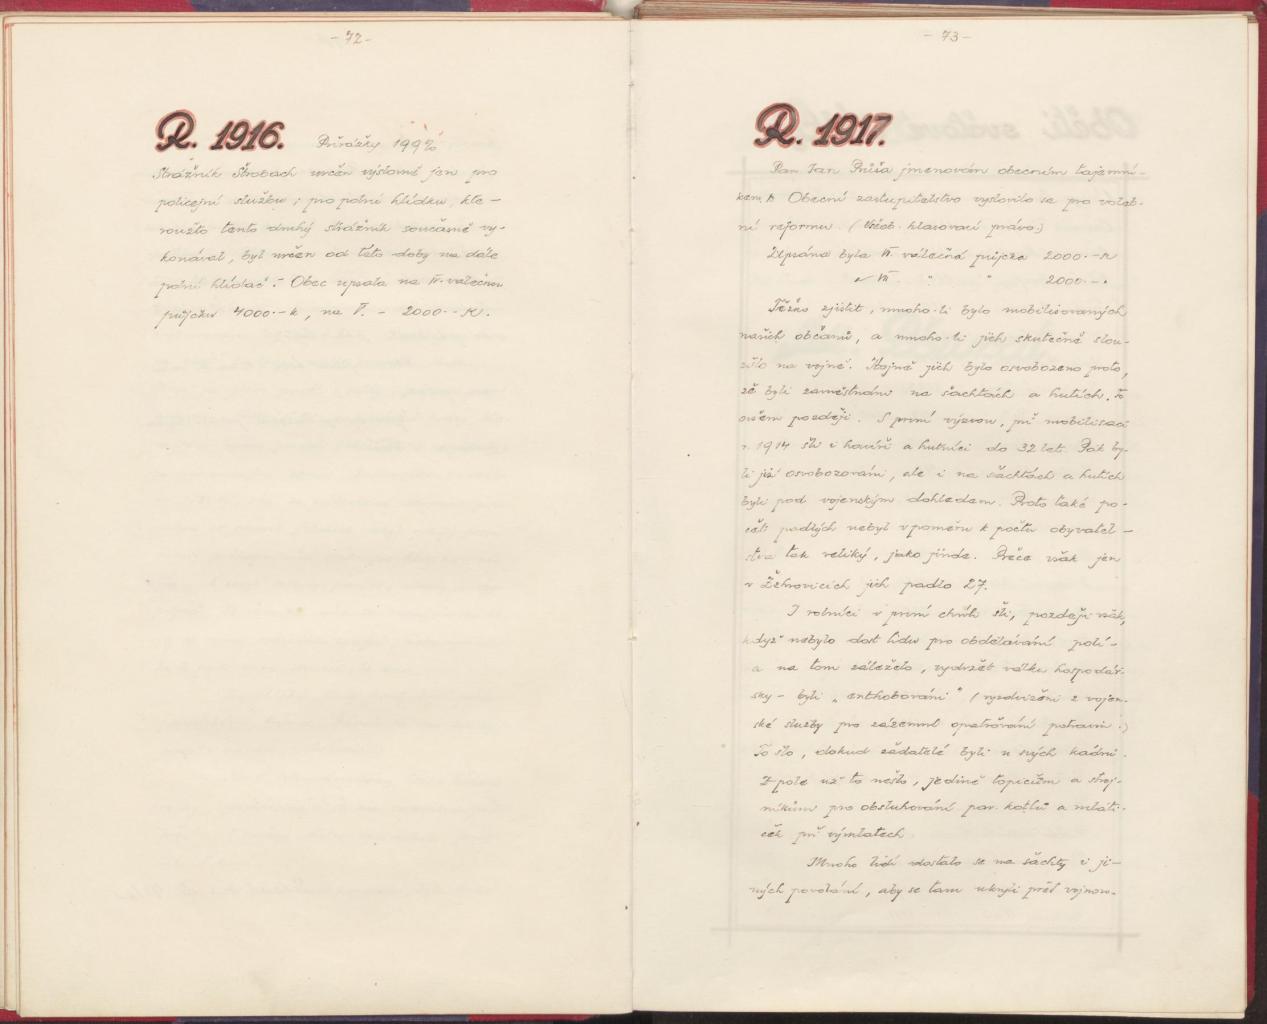 - 72 -
R. 1916. Přirážky 199%
Strážník Štrobach určen výslovně jen pro
policejní službu; pro polní hlídku, kte-
roužto tento druhý strážník současně vy-
konával, byl určen od této doby na dále
polní hlídač. - Obec upsala na IV. válečnou
půjčku 4000.- K, na V. - 2000.- K.
- 73 -
R. 1917.
Pan Jan Průša jmenován obecním tajemní-
kem. Obecní zastupitelstvo vyslovilo se pro voleb-
ní reformu. (Všeob. hlasovací právo.)
Upsána byla VI. válečná půjčka 2000.- K
" VII. " " 2000.- "
Těžko zjistit, mnoho-li bylo mobilisovaných
našich občanů, a mnoho-li jich skutečně slou-
žilo na vojně. Hojně jich bylo osvobozeno proto,
že byli zaměstnáni na šachtách a hutích. To
ovšem později. S první výzvou, při mobilisaci
r. 1914 šli i havíři a hutníci do 32 let. Pak by-
li již osvobozováni, ale i na šachtách a hutích
byli pod vojenským dohledem. Proto také po-
čet padlých nebyl v poměru k počtu obyvatel-
stva tak veliký, jako jinde. Přece však jen
v Žehrovicích jich padlo 27.
I rolníci v první chvíli šli, později však,
když nebylo dost lidu pro obdělávání polí -
a na tom záleželo, vydržet válku hospodář-
sky - byli „enthobováni" (vyzdviženi z vojen-
ské služby pro zázemní opatřování potravin.)
To šlo, dokud žadatelé byli u svých kádrů.
Z pole už to nešlo, jedině topičům a stroj-
níkům pro obsluhování par. kotlů a mláti-
ček při výmlatech.
Mnoho lidí dostalo se na šachty i ji-
ných povolání, aby se tam ukryli před vojnou.